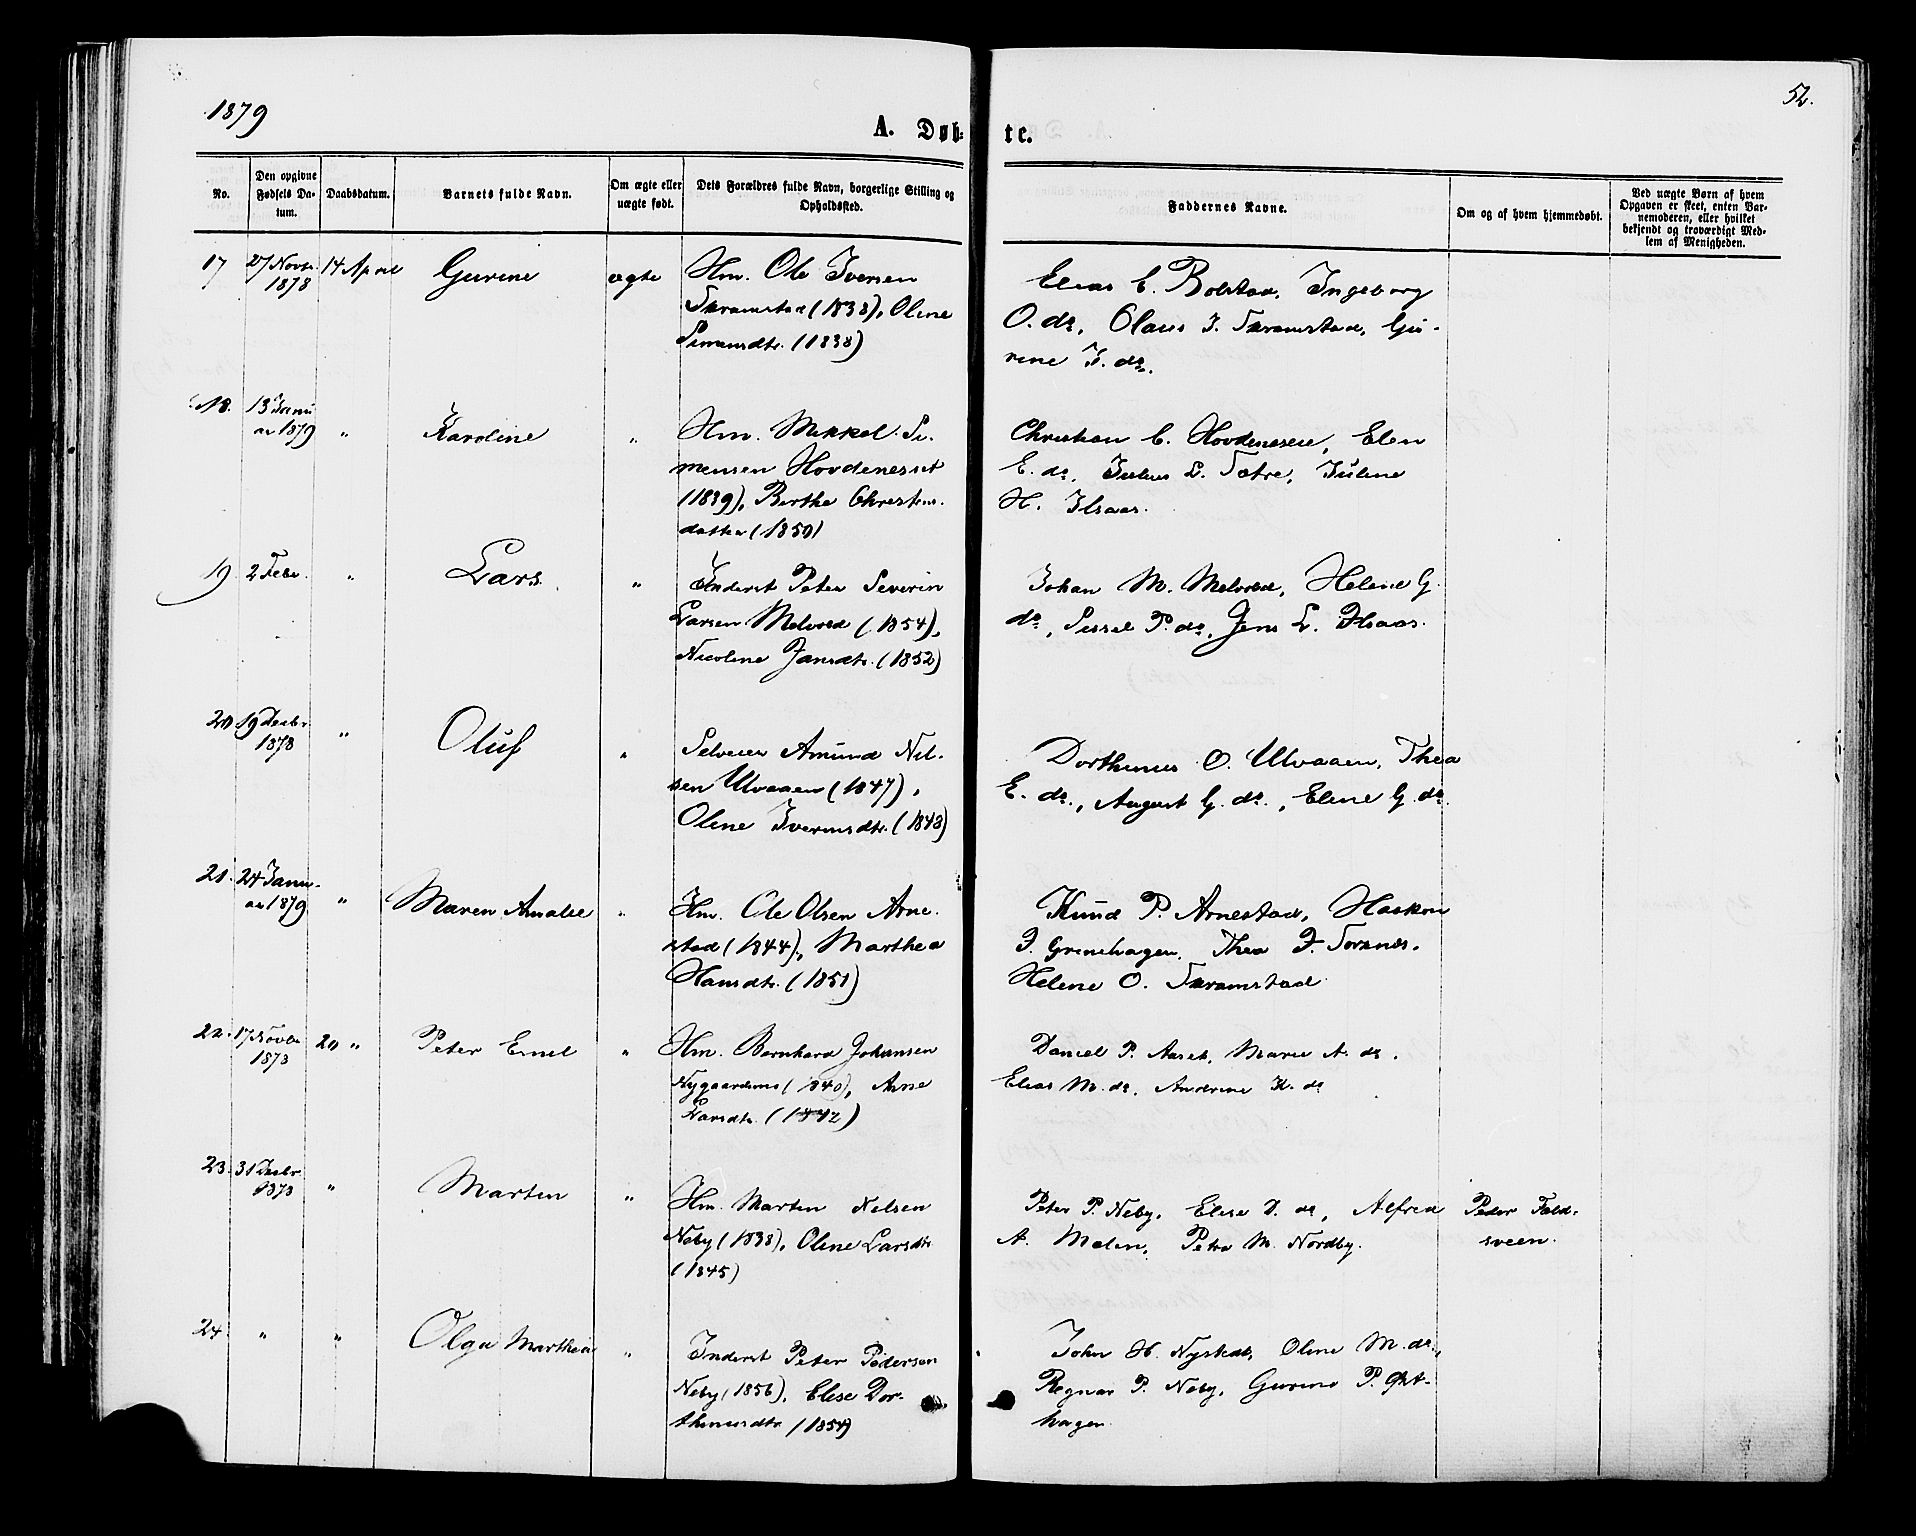 1879
52.
A. Døb- te.
No.
Den opgivne Fødsels Da- tum.
Daabsdatum.
Barnets fulde Navn.
Om ægte eller uægte født.
Dets Forældres fulde Navn, borgerlige Stilling og Opholdssted.
Faddernes Navne.
Om og af hvem hjemmedøbt.
Ved uægte Børn af hvem Opgaven er skeet, enten Bar- nemoderen, eller hvilket bekjendt og troværdigt Med- lem af Menigheden.
17 27 Novbr. 14 April Gurine ægte Hm. Ole Iversen
1878
Skramstad (1838), Oline
Simensdtr. (1838)
Elias C. Bolstad, Ingeborg
O. ds, Olaus I. Skramstad, Gu-
rine I. ds.
18. 13 Janu- " Karoline " Hm. Mikkel Si-
ar 1879
mensen
(1839), Berthe Christens-
datter (1850)
Christian C. Elen
E. ds, Julius L. Sætre, Juline
H. Ilsaas.
19. 2 Febr. " Lars. " Inderst Peter Severin
Larsen Melvold (1854),
Nicoline Jansdtr. (1852)
Johan M. Melvold, Helene G.
ds, Sissel P. ds, Jens L. Ilsaas.
20 19 Decbr. " Oluf " Selveier Amund Nil-
1878
sen Ulvaaen (1847),
Oline Iversdtr. (1848)
Dorthinus O. Ulvaaen, Thea
E. ds., August G. ds., Eline G. ds.
21. 24 Janu- " Maren Amalie " Hm. Ole Olsen Arne-
ar 1879
stad (1844), Marthea
Hansdtr. (1851)
Knud P. Arnestad, Haakon
Grinehagen, Thea
Helene O. Skramstad
22. 17 Novbr. 20 " Peter Emil " Hm. Bernhard Johansen
1878
(1840), Anne
Larsdtr. (1842)
Daniel P. Aaset, Marie A. ds.
Elias M. ds, Andrine K. ds
23. 31 Decbr. " Martin " Hm. Martin Nilsen
1878
Neby (1838), Oline Larsdtr.
(1845)
Peter P. Neby, Elise D. ds, Alfred
A. Melin, Petra M. Nordby.
Peder Fald-
sveen.
24. " " Olga Marthea " Inderst Peter Pedersen
Neby (1856), Elise Dor-
thinusdtr (1854)
John H. Nystedt, Oline M. ds.,
Regnar P. Neby, Gurine P.
hagen